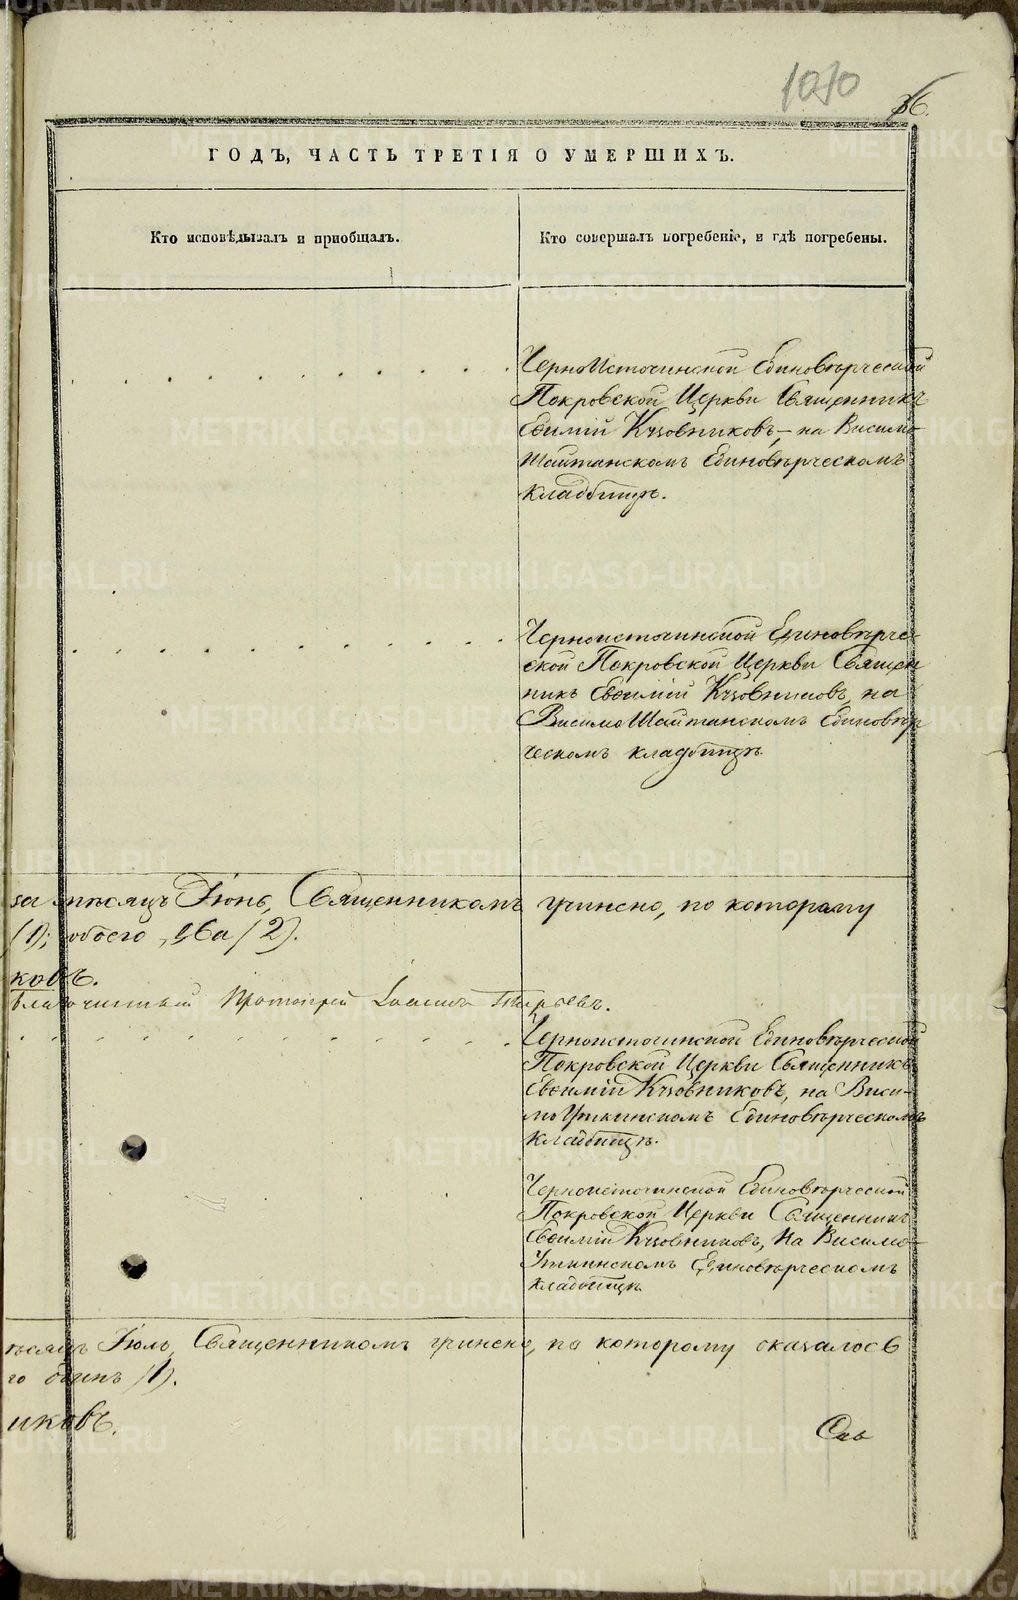 1010
36.
ГОДЪ, ЧАСТЬ ТРЕТІЯ О УМЕРШИХЪ.
Кто исповѣдывалъ и пріобщалъ.
Кто совершалъ погребеніе, и гдѣ погребены.
ЧерноИсточинской Единовѣрческой
Покровской Церкви Священникъ
Евѳимій Кузовниковъ, – на Висимо
Шайтанскомъ Единовѣрческомъ
кладбищѣ.
Черноисточинской Единовѣрче-
ской Покровской Церкви Священ
никъ Евѳимій Кузовниковъ, на
ВисимоШайтанскомъ Единовѣр
ческомъ кладбищѣ
за мѣсяцъ Іюнь, Священникомъ учинено, по которому
(1); обоего два (2).
ковъ.
Благочинный Протоіерей
Черноисточинской Единовѣрческой
Покровской Церкви Священникъ
Евѳимій Кузовниковъ, на Виси-
моУткинскомъ Единовѣрческомъ
кладбищѣ.
Черноисточинской Единовѣрческой
Покровской Церкви Священникъ
Евѳимій Кузовниковъ, на Висимо-
Уткинскомъ Единовѣрческомъ
кладбищѣ
ѣсяцъ Іюль, Священникомъ учинено, по которому оказалось
го одинъ (1).
иковъ.
METRIKI.GASO-URAL.RU